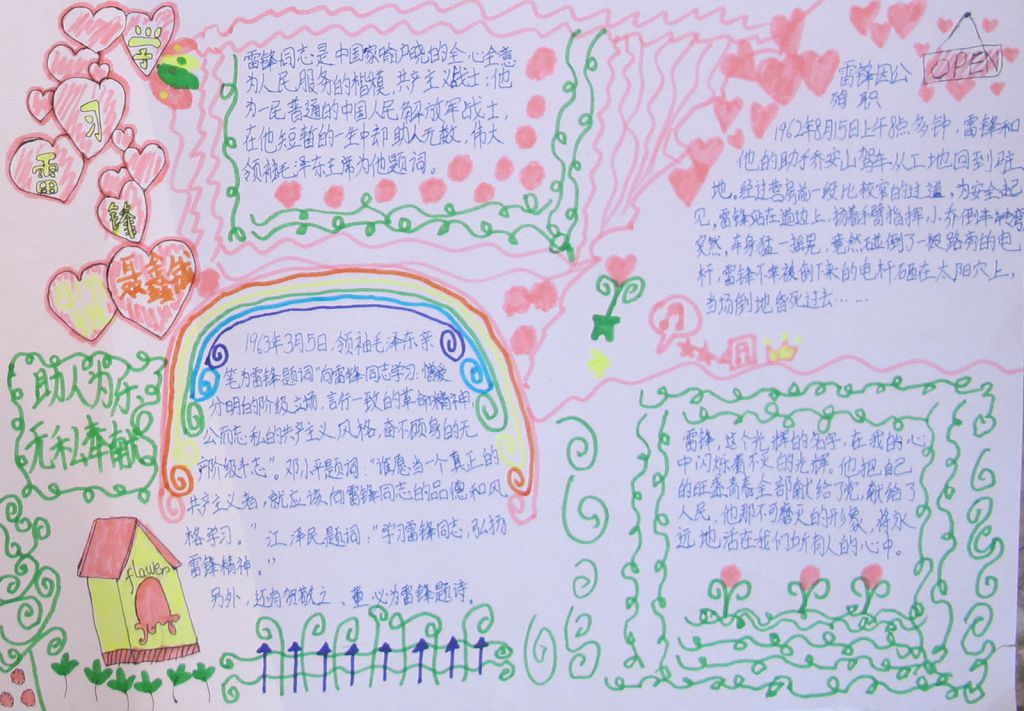 学
习
雷
锋
聂鑫钱
助人为乐
无私奉献
雷锋同志是中国家喻户晓的全心全意
为人民服务的楷模,共产主义战士;他
为一民普通的中国人民解放军战士,
在他短暂的一生中却助人无数,伟大
领袖毛泽东主席为他题词。
OPEN
雷锋因公
殉职
1962年8月15日上午8点多钟,雷锋和
他的助手乔安山驾车从工地回到驻
地。经过营房前一段比较窄的过道,为安全起
见,雷锋站在道边上,扬着手臂指挥小乔倒车
突然,车身猛一摇晃,竟然碰倒了一根路旁的电
杆,雷锋不幸被倒下来的电杆砸在太阳穴上,
当场倒地昏死过去……
1963年3月5日,领袖毛泽东亲
笔为雷锋题词"向雷锋同志学习,憎爱
分明的阶级立场,言行一致的革命精神,
公而忘私的共产主义风格,奋不顾身的无
产阶级斗志"。邓小平题词:"谁愿当一个真正的
共产主义者,就应该向雷锋同志的品德和风
格学习。" 江泽民题词:"学习雷锋同志,弘扬
雷锋精神。"
另外,还有贺敬之、董必为雷锋题诗。
雷锋,这个光辉的名字,在我的心
中闪烁着不灭的光辉。他把自己
的旺盛青春全部献给了党,献给了
人民,他那不可磨灭的形象,将永
远地活在我们所有人的心中。
flower